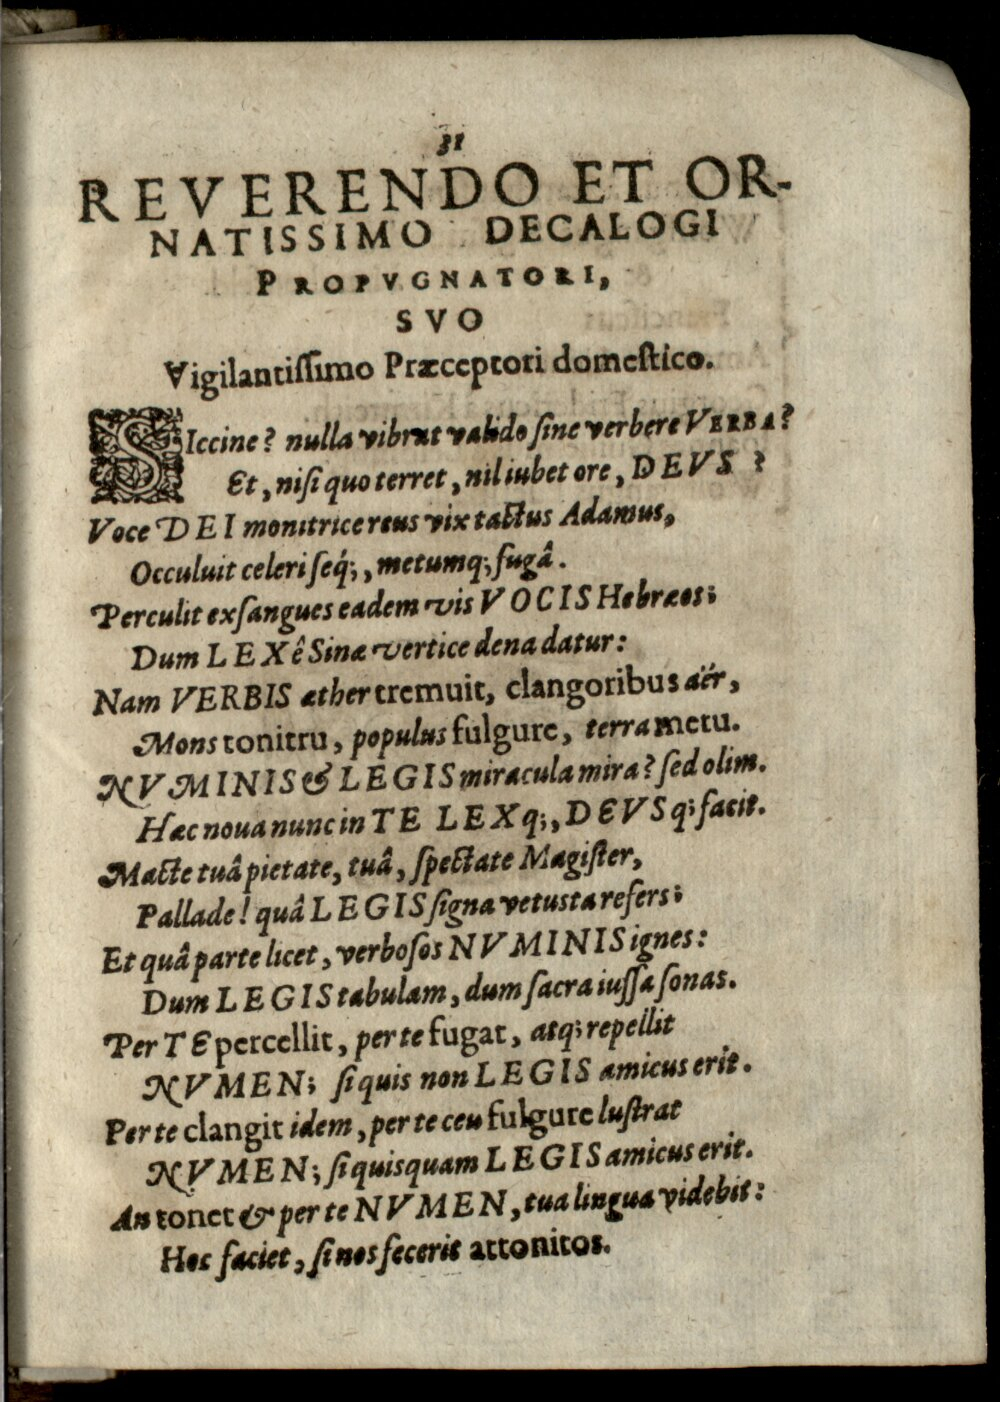 31
REVERENDO ET OR-
NATISSIMO DECALOGI
PROPVGNATORI,
SVO
Vigilantissimo Præceptori domestico.
SIccine? nulla vibrat valido sine verbere VERBA?
Et, nisi quo terret, nil iubet ore, DEVS ?
Voce DEI monitrice reus vix tactus Adamus,
Occuluit celeri seq́;, metumq́; fugâ.
Perculit exsangues eadem vis VOCIS Hebræos;
Dum LEX ê Sinæ vertice dena datur:
Nam VERBIS æther tremuit, clangoribus aër,
Mons tonitru, populus fulgure, terra metu.
NVMINIS & LEGIS miracula mira? sed olim.
Hæc nova nunc in TE LEXq;, DEVSq; facit.
Macte tuâ pietate, tuâ, spectate Magister,
Pallade! quâ LEGIS signa vetusta refers;
Et quâ parte licet, verbosos NVMINIS ignes:
Dum LEGIS tabulam, dum sacra iussa sonas.
Per TE percellit, per te fugat, atq; repellit
NVMEN; si quis non LEGIS amicus erit.
Per te clangit idem, per te ceu fulgure lustrat
NVMEN; si quisquam LEGIS amicus erit.
An tonet & per te NVMEN, tua lingua videbit:
Hoc faciet, si nos fecerit attonitos.